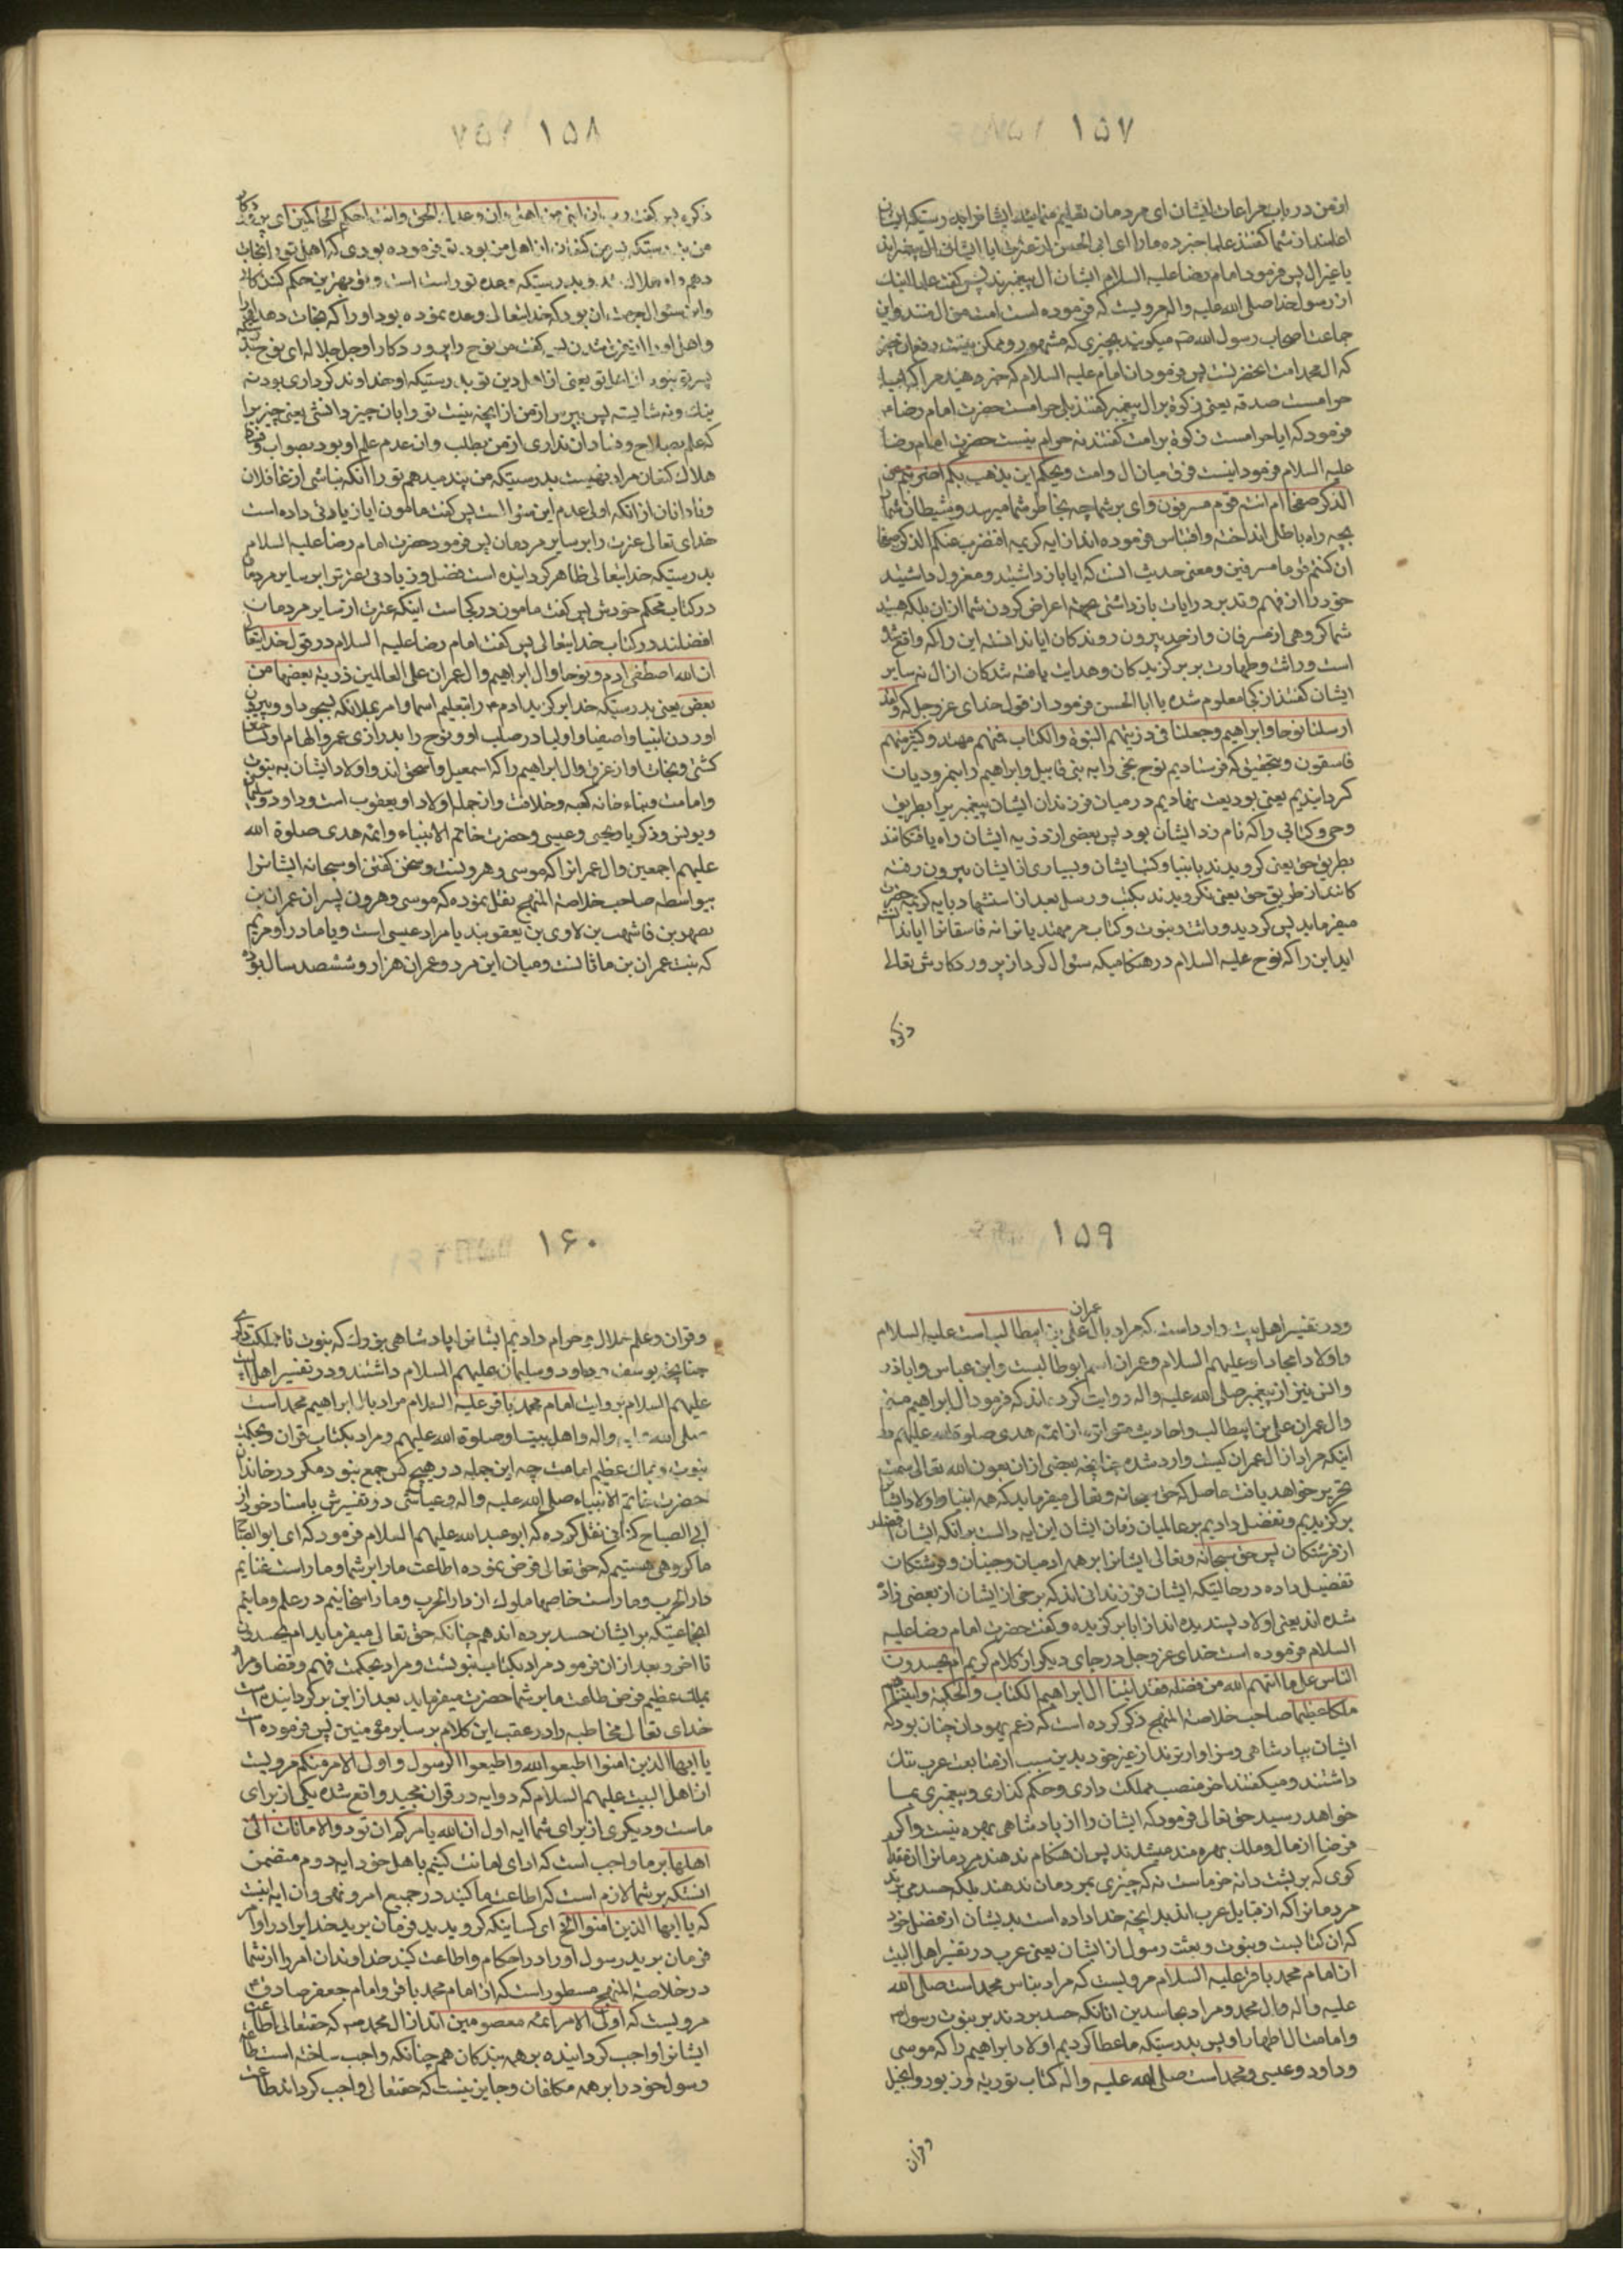 ۱۵۷
از من در باب مراعات ایشان ای مردمان تعلیم منمائید ایشانرا بدرستیکه ایشان
اعلمند از شما گفتند علما خبر ده ما را ای ابی الحسن از عترت ایا ایشان ال پیغمبراند
یا غیر ال پس فرمود امام رضا علیه السلام ایشان ال پیغمبرند پس گفتند علما اینک
از رسول خدا صلی الله علیه واله مرویست که فرموده است امت من ال منند و این
جماعت اصحاب رسول الله میگویند بچیزی که مشهور و ممکن نیست دفع ان چیز
که ال محمد امت انحضرتست پس فرمود ان امام علیه السلام که خبر دهید مرا که ایا
حرامست صدقه یعنی زکوة بر ال پیغمبر گفتند بلی حرامست حضرت امام رضا
فرمود که ایا حرامست زکوة بر امت گفتند نه حرام نیست حضرت امام رضا
علیه السلام فرمود اینست فرق میان ال و امت ویحکم این یذهب بکم اضربتم عن
الذکر صفحا ام انتم قوم مسرفون وای بر شما چه بخاطر شما میرسد و شیطان شما را
بچه راه باطل انداخته و اقتباس فرموده اند از ایه کریمه افنضرب عنکم الذکر صفحا
ان کنتم قوما مسرفین و معنی حدیث انست که ایا باز داشتید و معزول داشتید
خود را از فهم و تدبر در ایات باز داشتنی اعراض کردن شما از ان بلکه هستید
شما گروهی از مسرفان و از حد بیرون روندکان ایا ندانسته این را که واقع شد
است وراثت و طهارت بر برگزیدکان و هدایت یافته شدکان از ال نه سایر
ایشان گفتند از کجا معلوم شده یا ابا الحسن فرمود از قول خدای عز وجل که ولقد
ارسلنا نوحا و ابراهیم وجعلنا فی ذریتهم النبوة والکتاب فمنهم مهتد وکثیر منهم
فاسقون و بتحقیق که فرستادیم نوح نجی را به بنی قابیل و ابراهیم را بنمرودیان
کردانیدیم یعنی بودیعت نهادیم در میان فرزندان ایشان پیغمبری را بطریق
وحی و کتابی را که نام زد ایشان بود پس بعضی از ذریه ایشان راه یافتکانند
بطریق حق یعنی کرویدند بانبیا و کتب ایشان و بسیاری از ایشان بیرون رفته
کانند از طریق حق یعنی نکرویدند بکتب و رسل بعد از استشهاد بایه کریمه حضرت
میفرماید پس کردید وراثت و نبوت و کتاب مر مهتدیانرا نه فاسقانرا ایا ندانسته
اید این را که نوح علیه السلام در هنکامیکه سئوال کرد از پروردکارش تعالی
ذکره
۱۵۸
ذکره پس گفت رب ان ابنی من اهلی وان وعدک الحق وانت احکم الحاکمین ای پروردکار
من بدرستیکه پسر من کنعان از اهل من بود تو فرموده بودی که اهل تو را نجات
دهم و او هلاک شد و بدرستیکه وعده تو راست است و تو بهترین حکم کنندکانی
و این سئوال جهت ان بود که خدایتعالی وعده نموده بود او را که نجات دهد
و اهل او را از غرق شدن پس گفت من نوح را پروردکار او جل جلاله ای نوح بدرستیکه
پسر تو نبود از اهل تو یعنی از اهل دین تو بدرستیکه او خداوند کرداری بود نه
نیک و نه شایسته پس مپرس از من از انچه نیست تو را بان چیز دانشی یعنی چیزیرا
که علم بصلاح و فساد ان نداری از من مطلب و ان عدم علم او بود بصواب
هلاک کنعان مراد نهیست بدرستیکه من پند میدهم تو را انکه نباشی از غافلان
و نادانان از انکه اولی عدم این سئوالست پس گفت مامون ایا زیادتی داده است
خدای تعالی عترت را بر سایر مردمان پس فرمود حضرت امام رضا علیه السلام
بدرستیکه خدایتعالی ظاهر کردانیده است فضل و زیادتی عترت را بر سایر مردمان
در کتاب محکم خودش پس گفت مامون در کجاست اینکه عترت از سایر مردمان
افضلند در کتاب خدایتعالی پس گفت امام رضا علیه السلام در قول خدایتعالی
ان الله اصطفی ادم و نوحا وال ابراهیم وال عمران علی العالمین ذریة بعضها من
بعض یعنی بدرستیکه خدا برکزید ادم را بتعلیم اسما و امر بملائکه بسجود او و بیرون
اوردن انبیا و اصفیا و اولیا در صلب او و نوح را بدرازی عمر و الهام او بساختن
کشتی و نجات او از غرق و ال ابراهیم را که اسمعیل و اسحق اند و اولاد ایشان به نبوت
و امامت و بناء خانه کعبه و خلافت و از جمله اولاد او یعقوب است و داود و سلیمان
و یونس و زکریا و یحیی و عیسی و حضرت خاتم الانبیاء و ائمه هدی صلوة الله
علیهم اجمعین و ال عمرانرا که موسی و هرونست و سخن کفتن او سبحانه ایشانرا
بیواسطه صاحب خلاصة المنهج نقل نموده که موسی و هرون پسران عمران بن
یصهر بن قاهث بن لاوی بن یعقوبند یا مراد عیسی است و یا مادر او مریم
که بنت عمران بن ماثانست و میان این مرد و عمران هزار و ششصد سال بود
۱۵۹
و در تفسیر اهل بیت وارد است که مراد بال عمران علی بن ابیطالب است علیه السلام
و اولاد امجاد او علیهم السلام و عمران اسم ابو طالبست و ابن عباس و اباذر
و انس نیز از پیغمبر صلی الله علیه واله روایت کرده اند که فرمود ال ابراهیم منم
وال عمران علی بن ابیطالب و احادیث متواتره از ائمه هدی صلوة الله علیهم در
اینکه مراد از ال عمران کیست وارد شده چنانچه بعضی از ان بعون الله تعالی سمت
تحریر خواهد یافت حاصل که حق سبحانه و تعالی میفرماید که همه انبیا و اولاد ایشانرا
برکزیدیم و تفضیل دادیم بر عالمیان زمان ایشان این ایه دالست بر انکه ایشان افضلند
از فرشتکان پس حق سبحانه و تعالی ایشانرا بر همه ادمیان و جنیان و فرشتکان
تفضیل داده در حالتیکه ایشان فرزندانی اند که برخی از ایشان از بعضی زاده
شده اند یعنی اولاد پسندیده اند از ابا برکزیده و کفت حضرت امام رضا علیه
السلام فرموده است خدای عز وجل در جای دیکر از کلام کریم ام یحسدون
الناس علی ما اتیهم الله من فضله فقد اتینا ال ابراهیم الکتاب والحکمة واتیناهم
ملکا عظیما صاحب خلاصة المنهج ذکر کرده است که زعم یهودان چنان بود که
ایشان بپادشاهی سزاوارترند از غیر خود بدین سبب از متابعت عرب ننک
داشتند و میکفتند اخر منصب مملکت داری و حکم کذاری و پیغمبری بما
خواهد رسید حق تعالی فرمود که ایشان را از پادشاهی بهره نیست و اکر
فرضا از مال و ملک بهره مند میشدند پس ان هنکام ندهند مردمانرا
کوی که بر پشت دانه خرماست نه که چیزی بمردمان ندهند بلکه حسد میبرند
مردمانرا که از قبایل عرب اند بدانچه خدا داده است بدیشان از فضل خود
که ان کتابست و نبوت و بعثت رسول از ایشان یعنی عرب در تفسیر اهل البیت
از امام محمد باقر علیه السلام مرویست که مراد بناس محمد است صلی الله
علیه واله وال محمد و مراد بحاسدین انانکه حسد بردند بر نبوت رسول
و امامت ال اطهار او پس بدرستیکه ما عطا کردیم اولاد ابراهیم را که موسی
و داود و عیسی و محمد است صلی الله علیه واله کتاب توریة و زبور و انجیل
و قران
۱۶۰
و قران و علم حلال و حرام دادیم ایشانرا پادشاهی بزرک که نبوت با مملکت داری
چنانچه یوسف و داود و سلیمان علیهم السلام داشتند و در تفسیر اهل البیت
علیهم السلام بروایت امام محمد باقر علیه السلام مراد بال ابراهیم محمد است
صلی الله علیه واله و اهل بیت او صلوة الله علیهم و مراد بکتاب قران و بحکمت
نبوت و بملک عظیم امامت چه این جمله در هیچ کس جمع نبود مکر در خاندان
حضرت خاتم الانبیاء صلی الله علیه واله و عیاشی در تفسیرش باسناد خود از
ابی الصباح کنانی نقل کرده که ابو عبد الله علیهم السلام فرمود که ای ابو الصباح
ما کروهی هستیم که حق تعالی فرض نموده اطاعت ما را بر شما و ما راست غنایم
دار الحرب و ما راست خاصهای ملوک از دار الحرب و ما راسخانیم در علم و مائیم
انجماعتیکه بر ایشان حسد برده اند همچنانکه حق تعالی میفرماید ام یحسدون
تا اخر و بعد از ان فرمود مراد بکتاب نبوتست و مراد بحکمت فهم و قضا و مراد
بملک عظیم فرض طاعت ما بر شما حضرت میفرماید بعد از این بر کردانیده است
خدای تعالی مخاطبه را در عقب این کلام بر سایر مؤمنین پس فرموده است
یا ایها الذین امنوا اطیعوا الله واطیعوا الرسول واولی الامر منکم مرویست
از اهل البیت علیهم السلام که دو ایه در قران مجید واقع شده یکی از برای
ماست و دیکری از برای شما ایه اول ان الله یامرکم ان تؤدوا الامانات الی
اهلها بر ما واجب است که ادای امانت کنیم باهل خود ایه دوم متضمن
انستکه بر شما لازم است که اطاعت ما کنید در جمیع امر و نهی و ان ایه اینست
که یا ایها الذین امنوا الخ ای کسانیکه کرویدید فرمان برید خدا را در اوامر
فرمان برید رسول او را در احکام و اطاعت کنید خداوندان امر را از شما
در خلاصة المنهج مسطور است که از امام محمد باقر و امام جعفر صادق
مرویست که اولی الامر ائمه معصومین اند از ال محمد که حقتعالی اطاعت
ایشانرا واجب کردانیده بر همه بندکان همچنانکه واجب ساخته است طاعت
رسول خود را بر همه مکلفان و جایز نیست که حقتعالی واجب کرداند طاعت